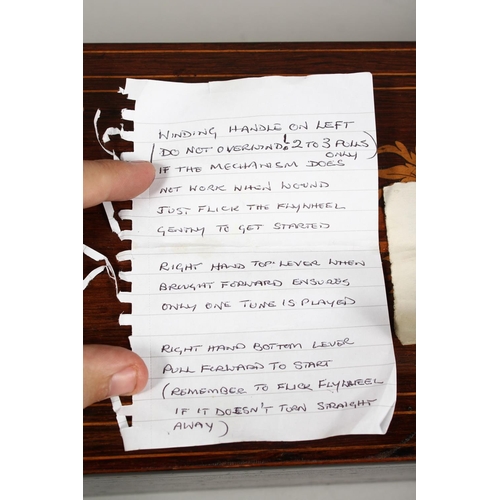 WINDING HANDLE ON LEFT
(DO NOT OVERWIND! 2 TO 3 PULLS ONLY)
IF THE MECHANISM DOES
NOT WORK WHEN WOUND
JUST FLICK THE FLYWHEEL
GENTLY TO GET STARTED
RIGHT HAND TOP LEVER WHEN
BROUGHT FORWARD ENSURES
ONLY ONE TUNE IS PLAYED
RIGHT HAND BOTTOM LEVER
PULL FORWARD TO START
(REMEMBER TO FLICK FLYWHEEL
IF IT DOESN'T TURN STRAIGHT
AWAY)